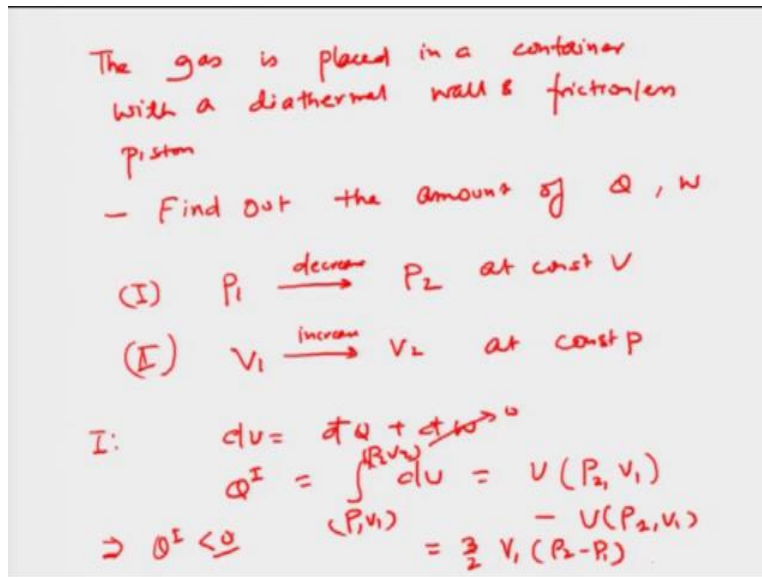 The gas is placed in a container
with a diathermal wall & frictionless
piston
- Find out the amount of Q, W
(I) P₁ —decrease→ P₂ at const V
(II) V₁ —increase→ V₂ at const P
I: dU = đQ + đW → 0
Q^I = ∫_(P₁V₁)^(P₂V₂) dU = U(P₂, V₁)
- U(P₂, V₁)
⇒ Q^I < 0 = 3/2 V₁ (P₂ - P₁)